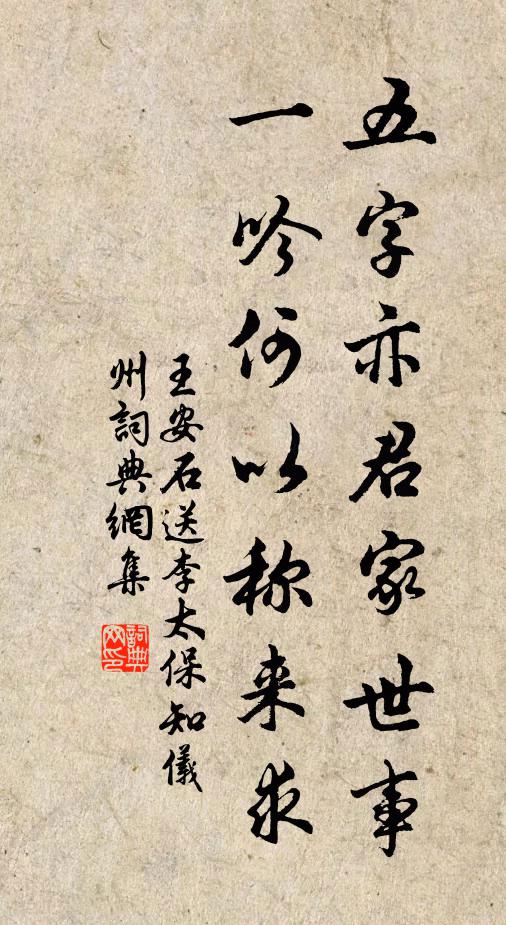 五字亦君家世事
一吟何以称来求
王安石送李太保知儀
州詞典網集
詞典
网印